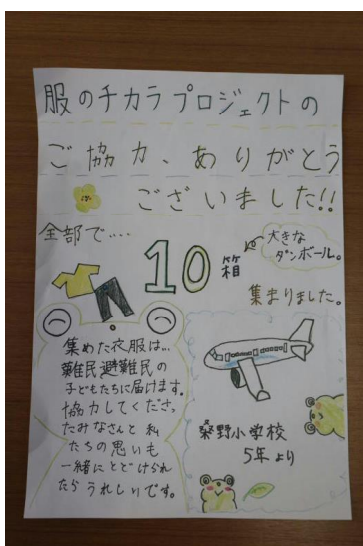 服のチカラプロジェクトの
ご協力、ありがとう
ございました!!
全部で....
10箱
大きな
ダンボール。
集まりました。
集めた衣服は...
難民避難民の
子どもたちに届けます。
協力してくださっ
たみなさんと私
たちの思いも
一緒にとどけられ
たらうれしいです。
桑野小学校
5年より